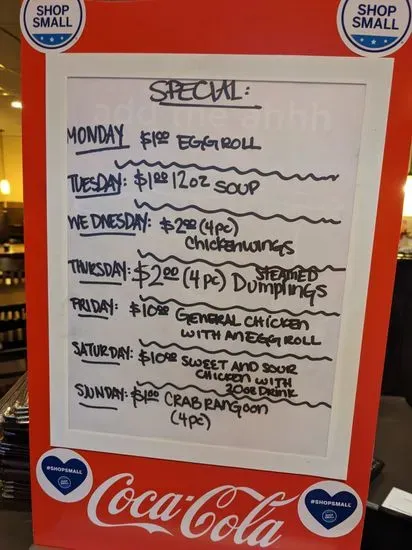 SHOP
SMALL
SHOP
SMALL
add the ahhh
SPECIAL:
MONDAY $1.00 EGGROLL
TUESDAY: $1.00 12oz SOUP
WEDNESDAY: $2.00 (4pc)
Chickenwings
THURSDAY: $2.00 (4pc) STEAMED
Dumplings
FRIDAY: $10.00 GENERAL CHICKEN
WITH AN EGGROLL
SATURDAY: $10.00 SWEET AND SOUR
CHICKEN WITH
20oz DRINK
SUNDAY: $1.00 CRAB RANGOON
(4pc)
#SHOPSMALL
#SHOPSMALL
Coca-Cola